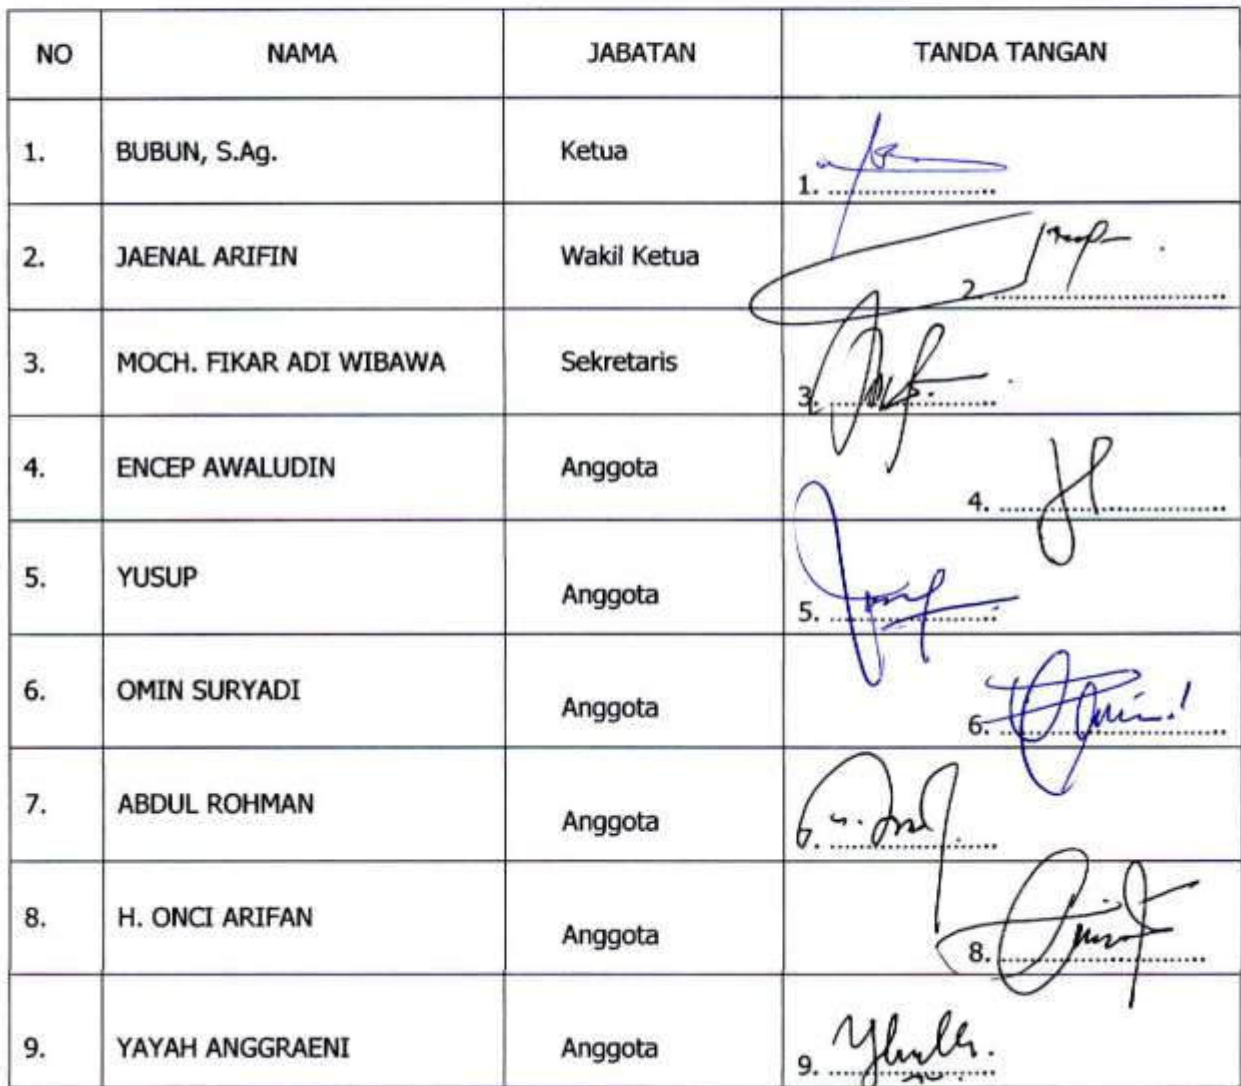 NO NAMA JABATAN TANDA TANGAN
1. BUBUN, S.Ag. Ketua 1. ....................
2. JAENAL ARIFIN Wakil Ketua 2. ............................
3. MOCH. FIKAR ADI WIBAWA Sekretaris 3. ....................
4. ENCEP AWALUDIN Anggota 4. ............................
5. YUSUP Anggota 5. ....................
6. OMIN SURYADI Anggota 6. ............................
7. ABDUL ROHMAN Anggota 7. ....................
8. H. ONCI ARIFAN Anggota 8. .........................
9. YAYAH ANGGRAENI Anggota 9. ....................